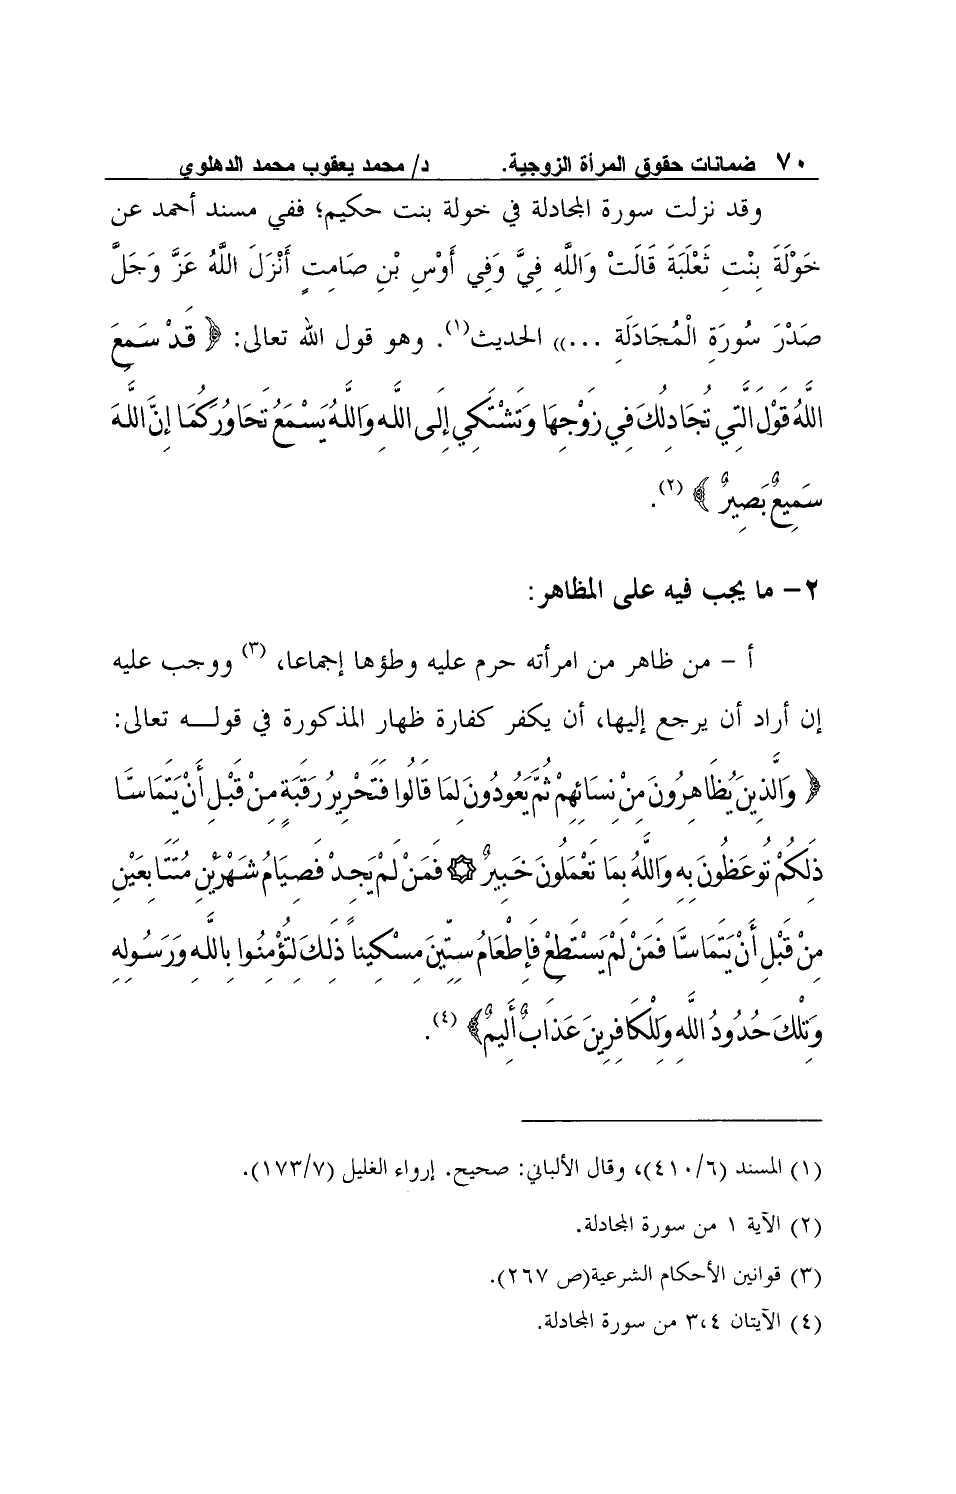 ٧٠ ضمانات حقوق المرأة الزوجية. د/ محمد يعقوب محمد الدهلوي
وقد نزلت سورة المجادلة في خولة بنت حكيم؛ ففي مسند أحمد عن
خَوْلَةَ بِنْتِ ثَعْلَبَةَ قَالَتْ وَاللَّهِ فِيَّ وَفِي أَوْسِ بْنِ صَامِتٍ أَنْزَلَ اللَّهُ عَزَّ وَجَلَّ
صَدْرَ سُورَةِ الْمُجَادَلَةِ ...» الحديث(١). وهو قول الله تعالى: ﴿ قَدْ سَمِعَ
اللَّهُ قَوْلَ الَّتِي تُجَادِلُكَ فِي زَوْجِهَا وَتَشْتَكِي إِلَى اللَّهِ وَاللَّهُ يَسْمَعُ تَحَاوُرَكُمَا إِنَّ اللَّهَ
سَمِيعٌ بَصِيرٌ ﴾ (٢).
٢- ما يجب فيه على المظاهر:
أ - من ظاهر من امرأته حرم عليه وطؤها إجماعا، (٣) ووجب عليه
إن أراد أن يرجع إليها، أن يكفر كفارة ظهار المذكورة في قولـــه تعالى:
﴿ وَالَّذِينَ يُظَاهِرُونَ مِنْ نِسَائِهِمْ ثُمَّ يَعُودُونَ لِمَا قَالُوا فَتَحْرِيرُ رَقَبَةٍ مِنْ قَبْلِ أَنْ يَتَمَاسَّا
ذَلِكُمْ تُوعَظُونَ بِهِ وَاللَّهُ بِمَا تَعْمَلُونَ خَبِيرٌ ۞ فَمَنْ لَمْ يَجِدْ فَصِيَامُ شَهْرَيْنِ مُتَتَابِعَيْنِ
مِنْ قَبْلِ أَنْ يَتَمَاسَّا فَمَنْ لَمْ يَسْتَطِعْ فَإِطْعَامُ سِتِّينَ مِسْكِيناً ذَلِكَ لِتُؤْمِنُوا بِاللَّهِ وَرَسُولِهِ
وَتِلْكَ حُدُودُ اللَّهِ وَلِلْكَافِرِينَ عَذَابٌ أَلِيمٌ﴾ (٤).
(١) المسند (٤١٠/٦)، وقال الألباني: صحيح. إرواء الغليل (١٧٣/٧).
(٢) الآية ١ من سورة المجادلة.
(٣) قوانين الأحكام الشرعية(ص ٢٦٧).
(٤) الآيتان ٣،٤ من سورة المجادلة.